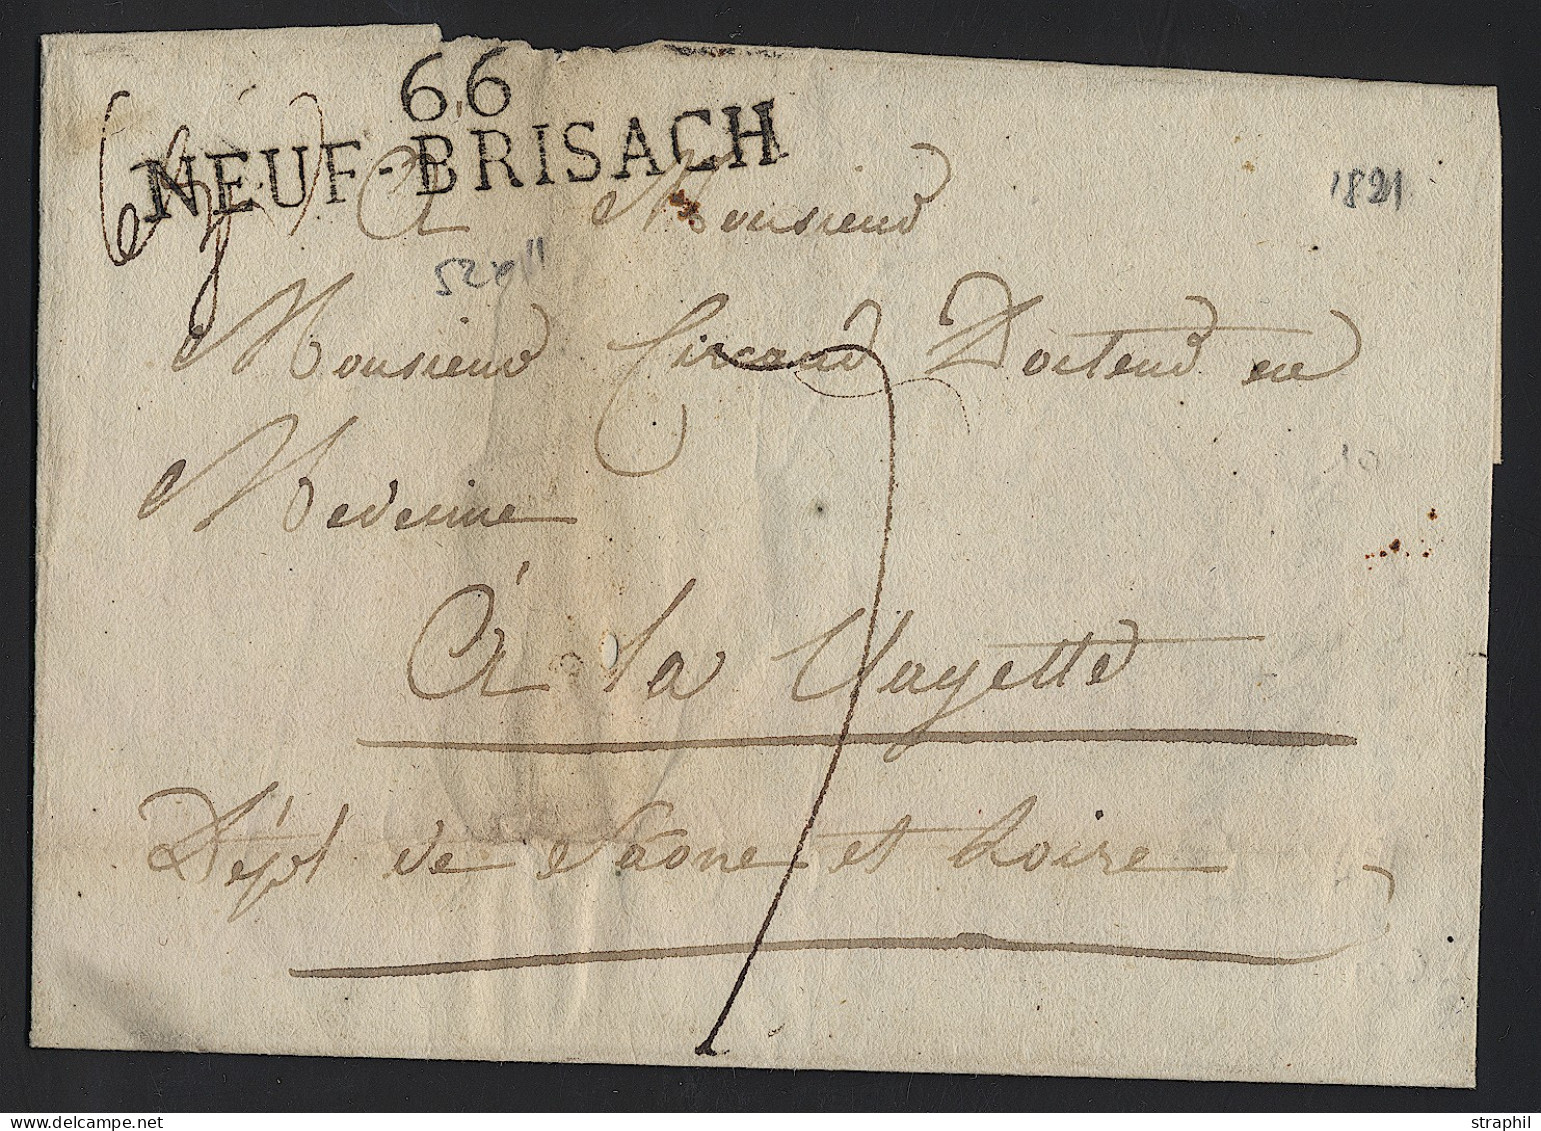 66
NEUF-BRISACH
A Monsieur
1821
52x11
Monsieur Docteur en
Medecine
A la Clayette
Dép.t de Saone et Loire
7
straphil